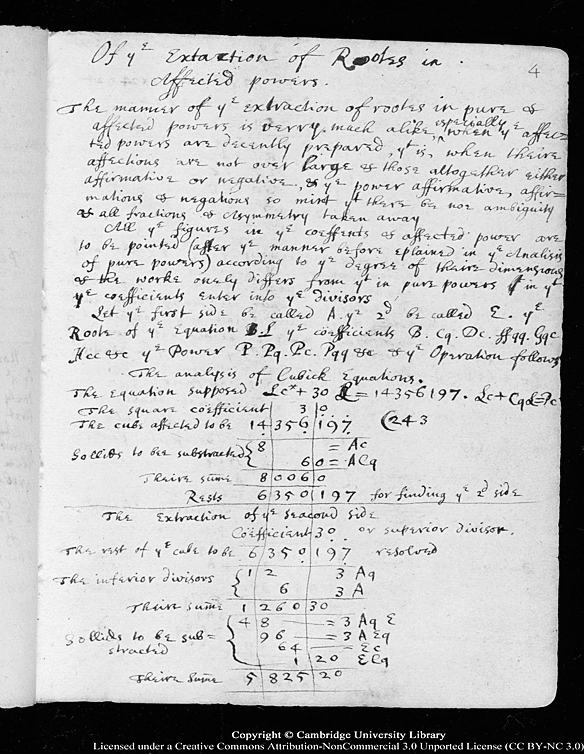 Of yᵉ Extaction of Rootes in
Affected powers.
4
The manner of yᵉ extraction of rootes in pure &
affected powers is verry much alike, especially when yᵉ affec=
ted powers are decently prepared, yᵗ is, when theire
affections are not over large & those altogether either
affirmative or negative, & yᵉ power affirmative, affir=
mations & negations so mixt yᵗ there be not ambiguity
& all fractions & Asymmetry taken away
All yᵉ figures in yᵉ coeffients & affected power are
to be pointed (after yᵉ manner before eplained in yᵉ Analysis
of pure powers) according to yᵉ degree of theire dimensions
& the worke onely differs from yᵗ in pure powers in yᵗ
yᵉ coefficients enter into yᵉ divisors
Let yᵉ first side be called A. yᵉ 2ᵈ be called E. yᵉ
Roote of yᵉ Equation L yᵉ coefficients B. Cq. Dc. ffqq. Gqc
Hcc &c yᵉ Power P. Pq. Pc. Pqq &c & yᵉ Operation follows
The analysis of Cubick Equations.
The equation supposed Lc* + 30 L = 14356197. Lc + CqL = Pc
The square coefficient 3 0
The cube affected to be 14 356 197 (243
Sollids to bee substracted { 8 = Ac
6 0 = ACq
Theire sume 8 0 0 6 0
Rests 6 3 5 0 1 9 7 for finding yᵉ 2ᵈ side
The Extraction of yᵉ seacond side
Coefficient 30 or superior divisor.
The rest of yᵉ cube to be 6 3 5 0 1 9 7 resolved
The inferior divisors { 1 2 3 Aq
6 3 A
Theire sume 1 2 6 0 3 0
Sollids to be sub=
stracted { 4 8 = 3 Aq E
9 6 = 3 A Eq
6 4 = Ec
1 2 0 ECq
Theire sume 5 8 2 5 2 0
Copyright © Cambridge University Library
Licensed under a Creative Commons Attribution-NonCommercial 3.0 Unported License (CC BY-NC 3.0)